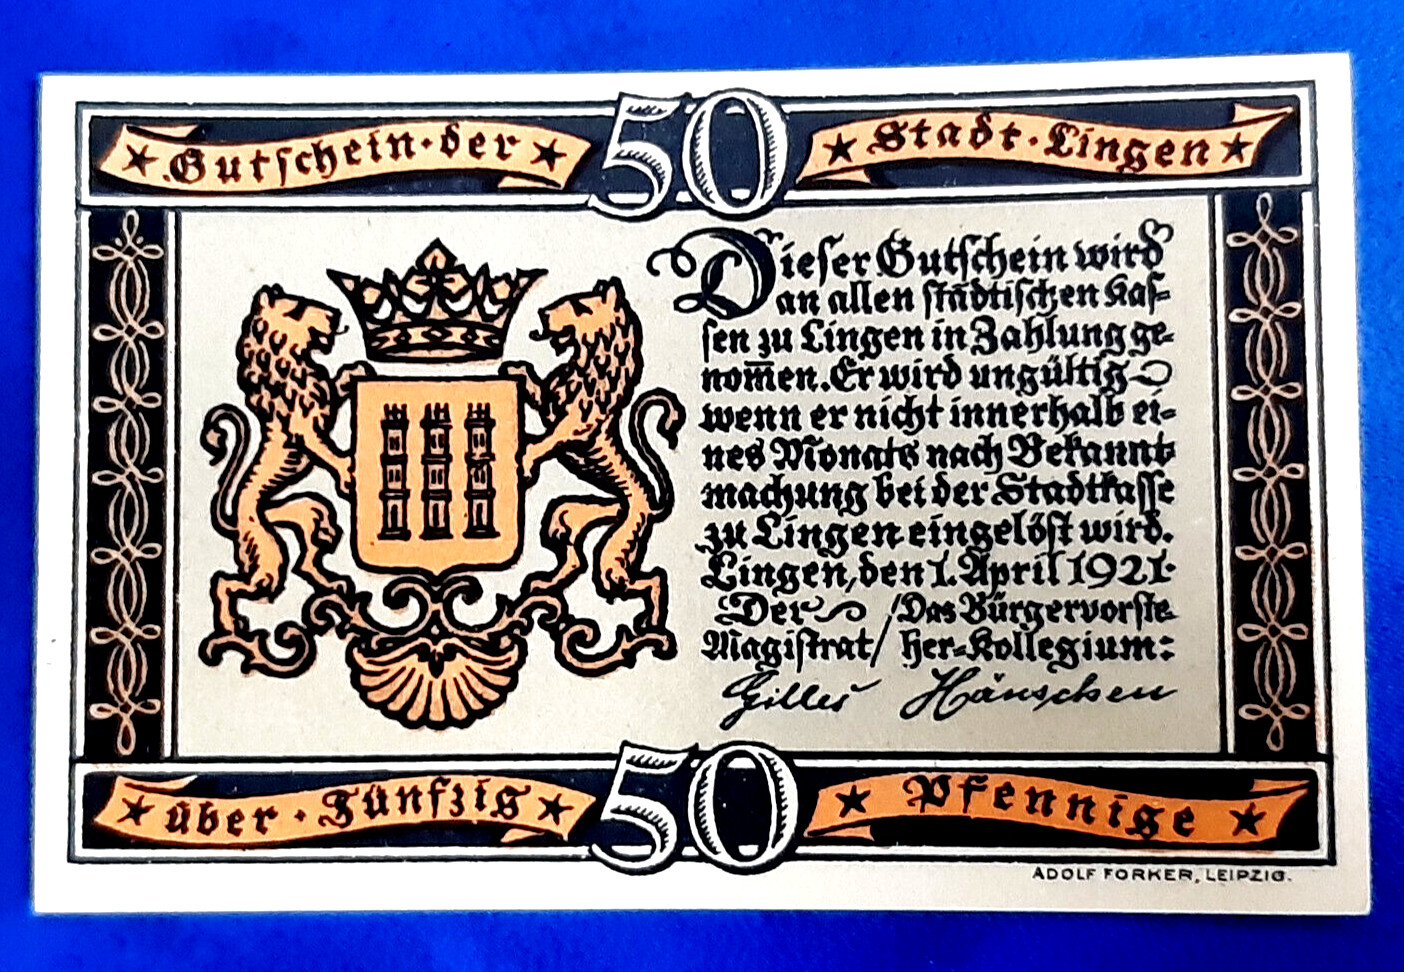 Gutschein · der 50 Stadt · Lingen
Dieser Gutschein wird
an allen städtischen Kas=
sen zu Lingen in Zahlung ge=
nom̄en. Er wird ungültig
wenn er nicht innerhalb ei=
nes Monats nach Bekannt=
machung bei der Stadtkasse
zu Lingen eingelöst wird.
Lingen, den 1. April 1921·
Der / Das Bürgervorste
Magistrat / her=Kollegium:
Gilles Hänschen
über · Fünfzig 50 Pfennige
ADOLF FORKER, LEIPZIG.